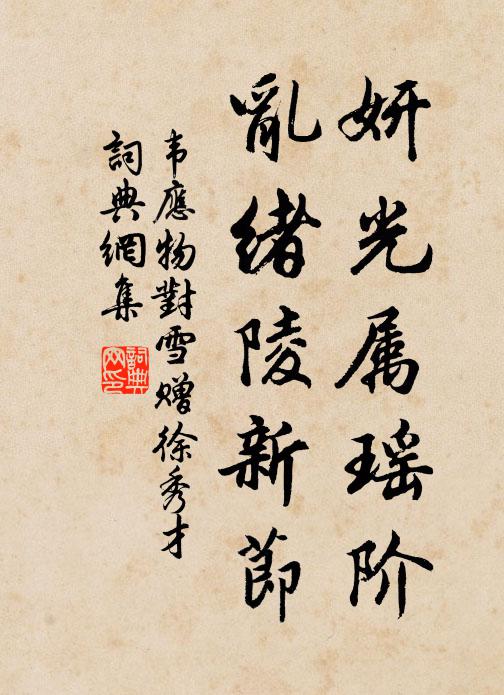 妍光属瑶阶
亂绪陵新節
韦應物對雪赠徐秀才
詞典網集
詞典网印